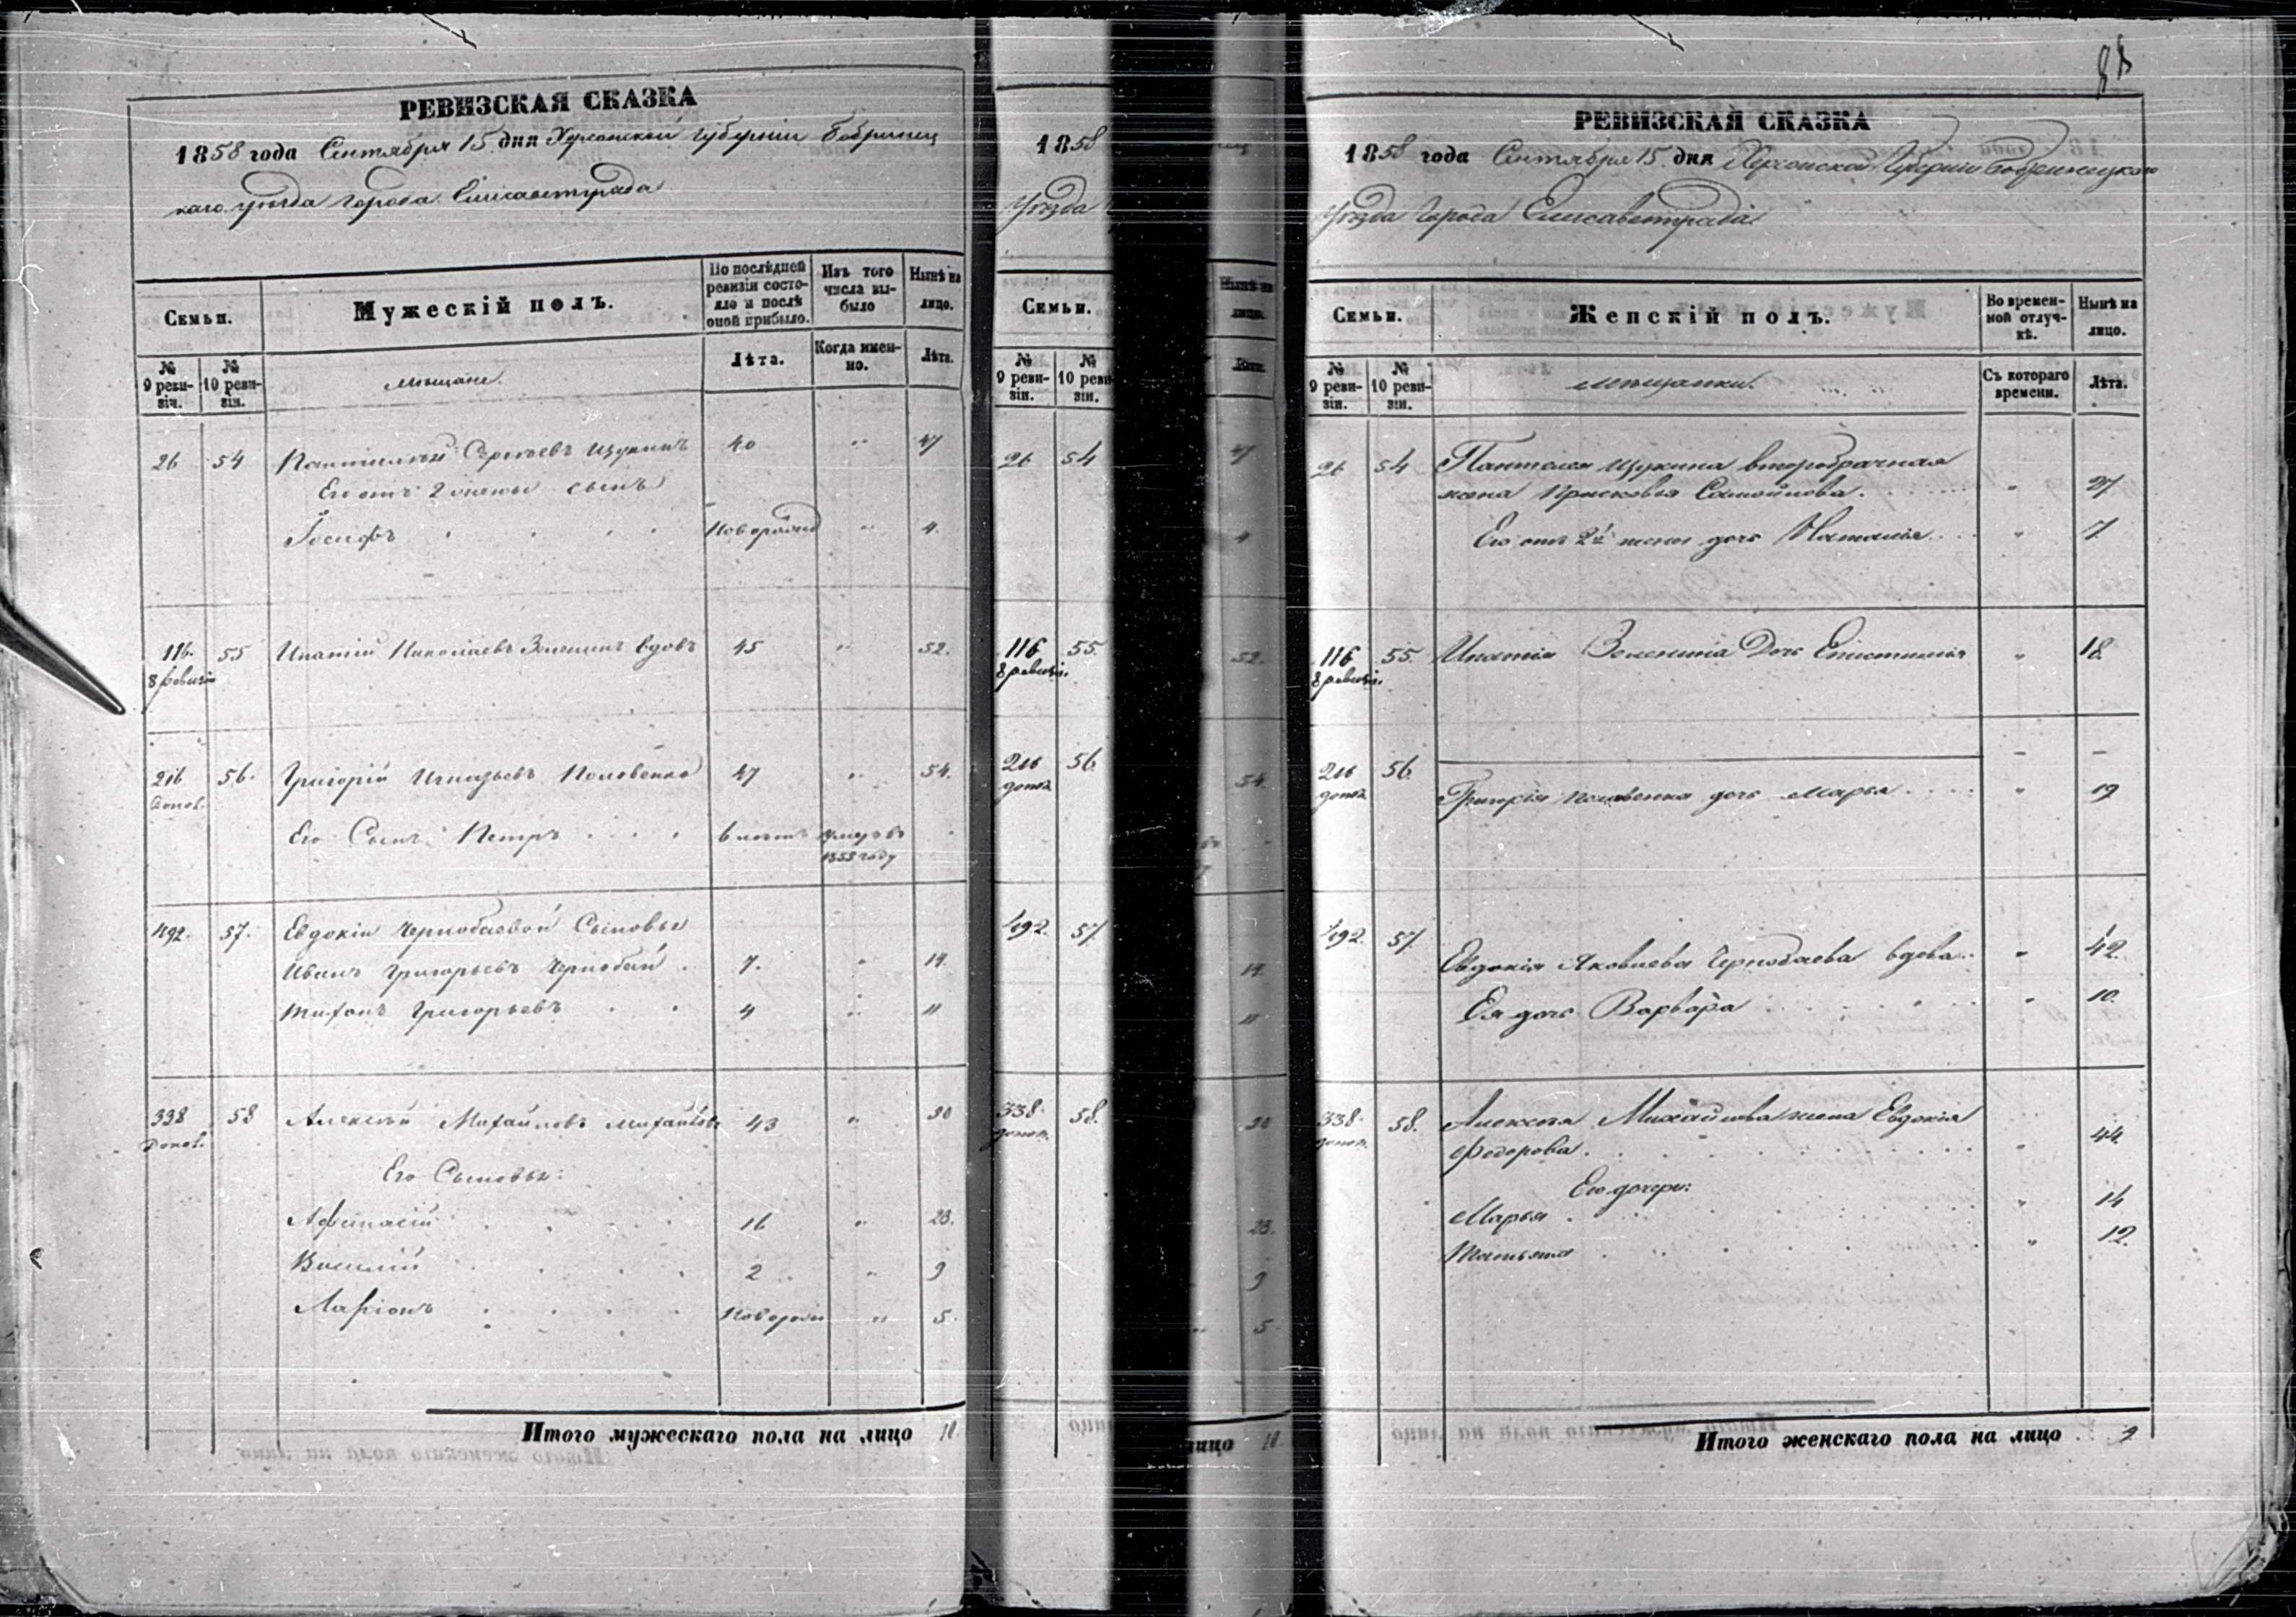 РЕВИЗСКАЯ СКАЗКА
1858 года Сентября 15 дня Херсонской Губерніи Бобринец
каго уѣзда Города Елисаветграда
Семьи.
Мужескій полъ.
По послѣдней ревизіи состояло и послѣ оной прибыло.
Изъ того числа выбыло
Нынѣ на лицо.
№ 9 ревизіи.
№ 10 ревизіи.
мѣщане.
Лѣта.
Когда именно.
Лѣта.
26 54 Пантилѣй Сергѣевъ Щукинъ 40 " 47
Его отъ 2 жены сынъ
Іосифъ Новорожд " 4.
116. 55 Ипатій Николаевъ Зеленинъ вдовъ 45 " 52.
8 ревизіи
216 56. Григорій Игнатьевъ Половенко 47 " 54.
допол.
Его Сынъ Петръ 6 лѣтъ умеръ въ
1855 году
492. 57. Евдокіи Чернобаевой Сыновья
Иванъ Григорьевъ Чернобай 7. " 14.
Тихонъ Григорьевъ 4 " 11
338 58 Алексѣй Михайловъ Михайловъ 43 " 50
допол.
Его Сыновья:
Афанасій 16 " 23.
Василій 2 " 9
Ларіонъ Новорож " 5.
Итого мужескаго пола на лицо 10.
1858
уѣзда
Семьи.
№ 9 ревизіи.
№ 10 ревизіи.
26 54
116 55
8 ревизіи.
216 56
допол.
492. 57
338. 58.
допол.
Нынѣ на лицо.
Лѣта.
47
4
52.
54.
14.
11
50
23.
9
5.
лицо 10.
88
РЕВИЗСКАЯ СКАЗКА
1858 года Сентября 15 дня Херсонской Губерніи Бобринецкаго
уѣзда Города Елисаветграда
Семьи.
Женскій полъ.
Во временной отлучкѣ.
Нынѣ на лицо.
№ 9 ревизіи.
№ 10 ревизіи.
мѣщанки.
Съ котораго времени.
Лѣта.
26 54 Пантелея Щукина второбрачная
жена Прасковья Самойлова. " 27
Его отъ 2й жены дочь Наталья " 7
116 55. Ипатія Зеленина Дочь Епистимія " 18.
8 ревизіи.
216 56. — —
допол. Григорія Половенка дочь Марья " 19
492. 57. Евдокія Яковлева Чернобаева вдова. " 42.
Ея дочь Варвара " 10.
338. 58. Алексѣя Михайлова жена Евдокія
допол. Федорова. " 44.
Его дочери:
Марья " 14
Татьяна " 12.
Итого женскаго пола на лицо 9